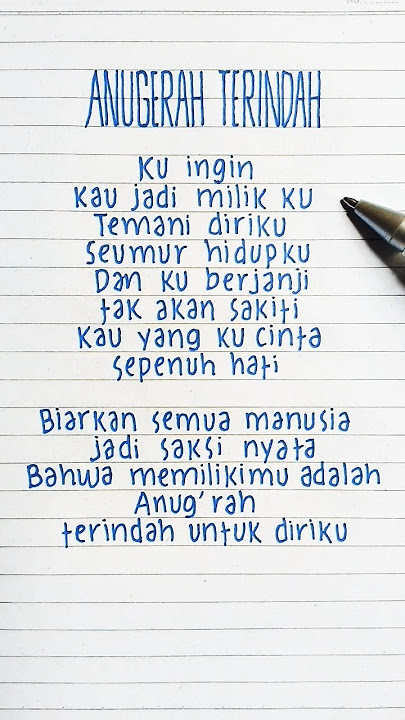 ANUGERAH TERINDAH
Ku ingin
Kau jadi milik ku
Temani diriku
Seumur hidupku
Dan ku berjanji
tak akan sakiti
Kau yang ku cinta
sepenuh hati
Biarkan semua manusia
jadi saksi nyata
Bahwa memilikimu adalah
Anug'rah
terindah untuk diriku